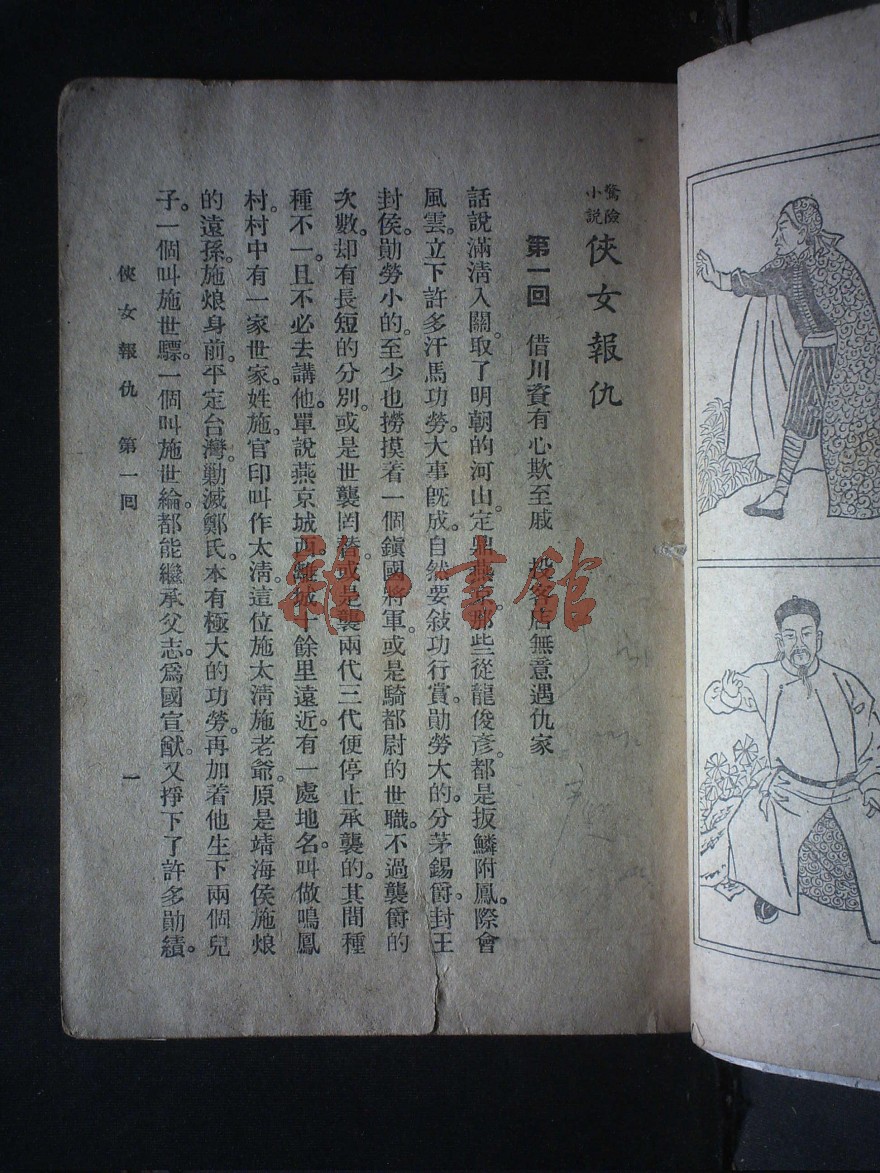 驚險小說
俠女報仇
第一回　借川資有心欺至戚　投客店無意遇仇家
話說滿清入關。取了明朝的河山。定鼎燕京。那些從龍俊彥。都是扳鱗附鳳。際會
風雲。立下許多汗馬功勞。大事旣成。自然要敍功行賞。勛勞大的。分茅錫爵。封王
封侯。勛勞小的。至少也撈摸着一個鎭國將軍。或是騎都尉的世職。不過襲爵的
次數。却有長短的分別。或是世襲罔替。或是襲兩代三代便停止承襲的。其間種
種不一。且不必去講他。單說燕京城西。離城十餘里遠近。有一處地名。叫做鳴鳳
村。村中有一家世家。姓施。官印叫作太淸。這位施太淸施老爺。原是靖海侯施烺
的遠孫。施烺身前。平定台灣。勦滅鄭氏。本有極大的功勞。再加着他生下兩個兒
子。一個叫施世驃。一個叫施世綸。都能繼承父志。爲國宣猷。又掙下了許多勛績。
俠女報仇　第一回
一
雜·書館